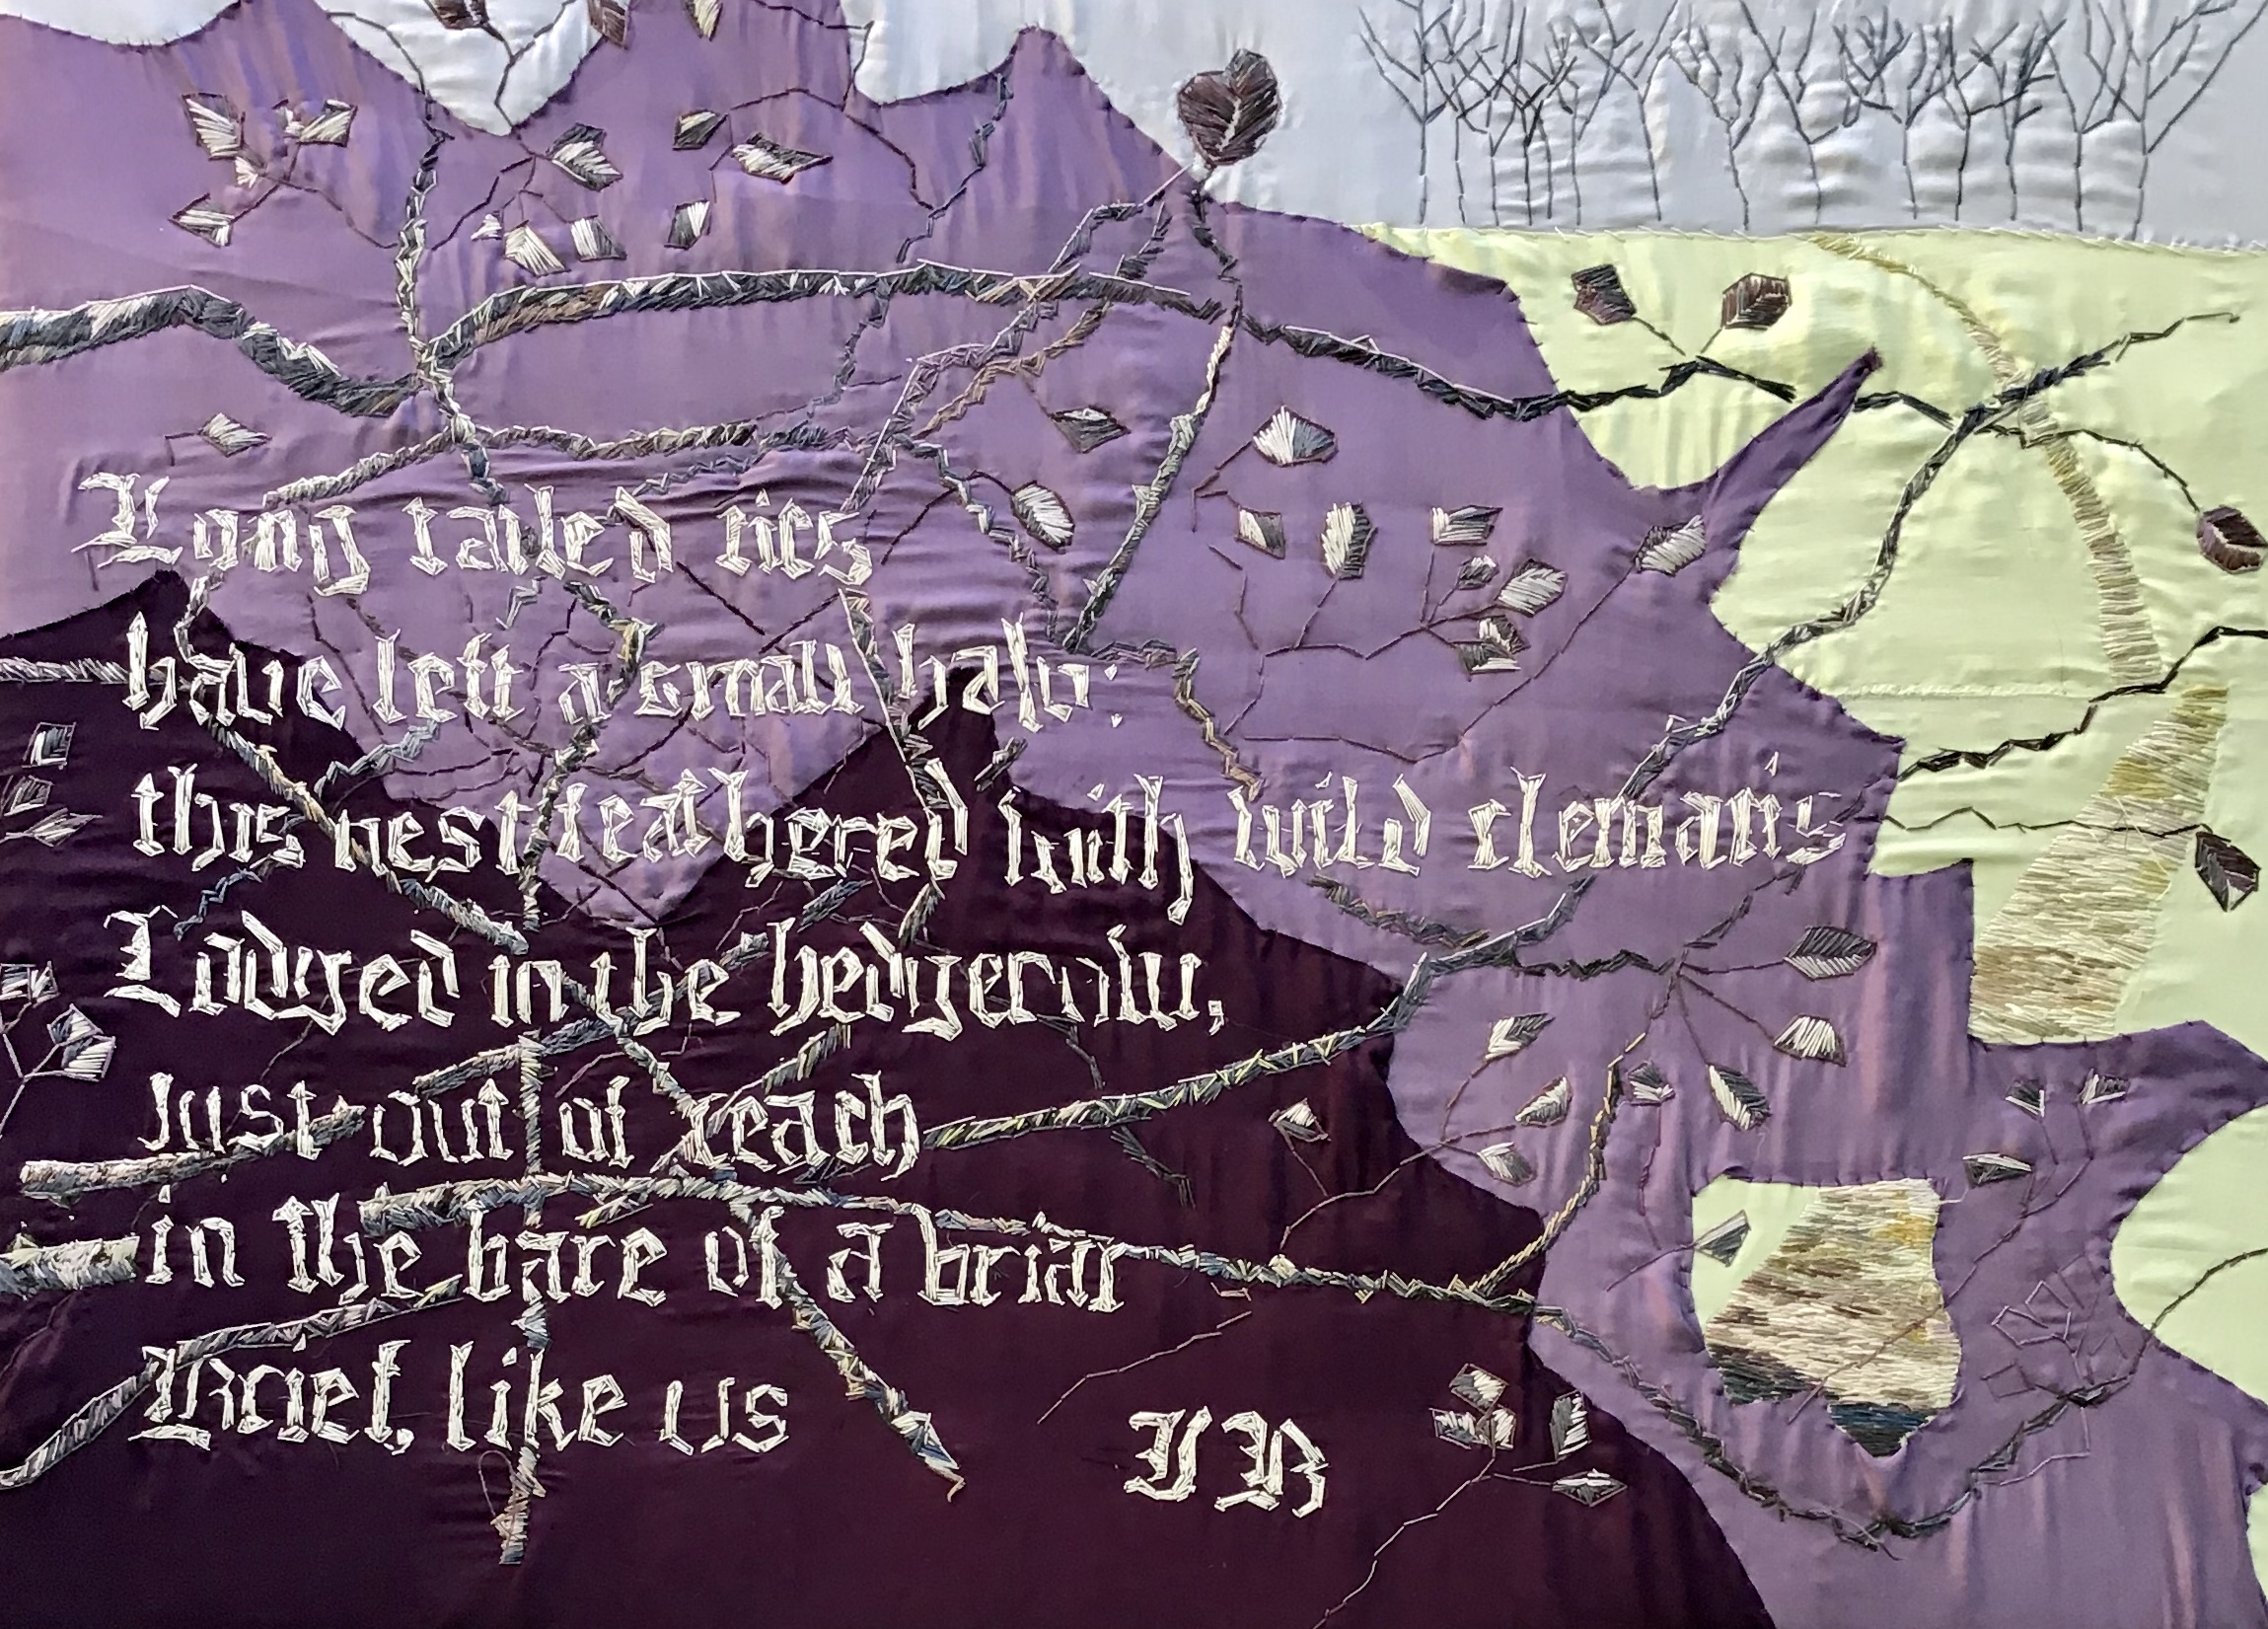 Long tailed tits
have left a small halo:
this nest feathered with wild clematis
Lodged in the hedgerow,
just out of reach
in the bare of a briar
Brief, like us
YB